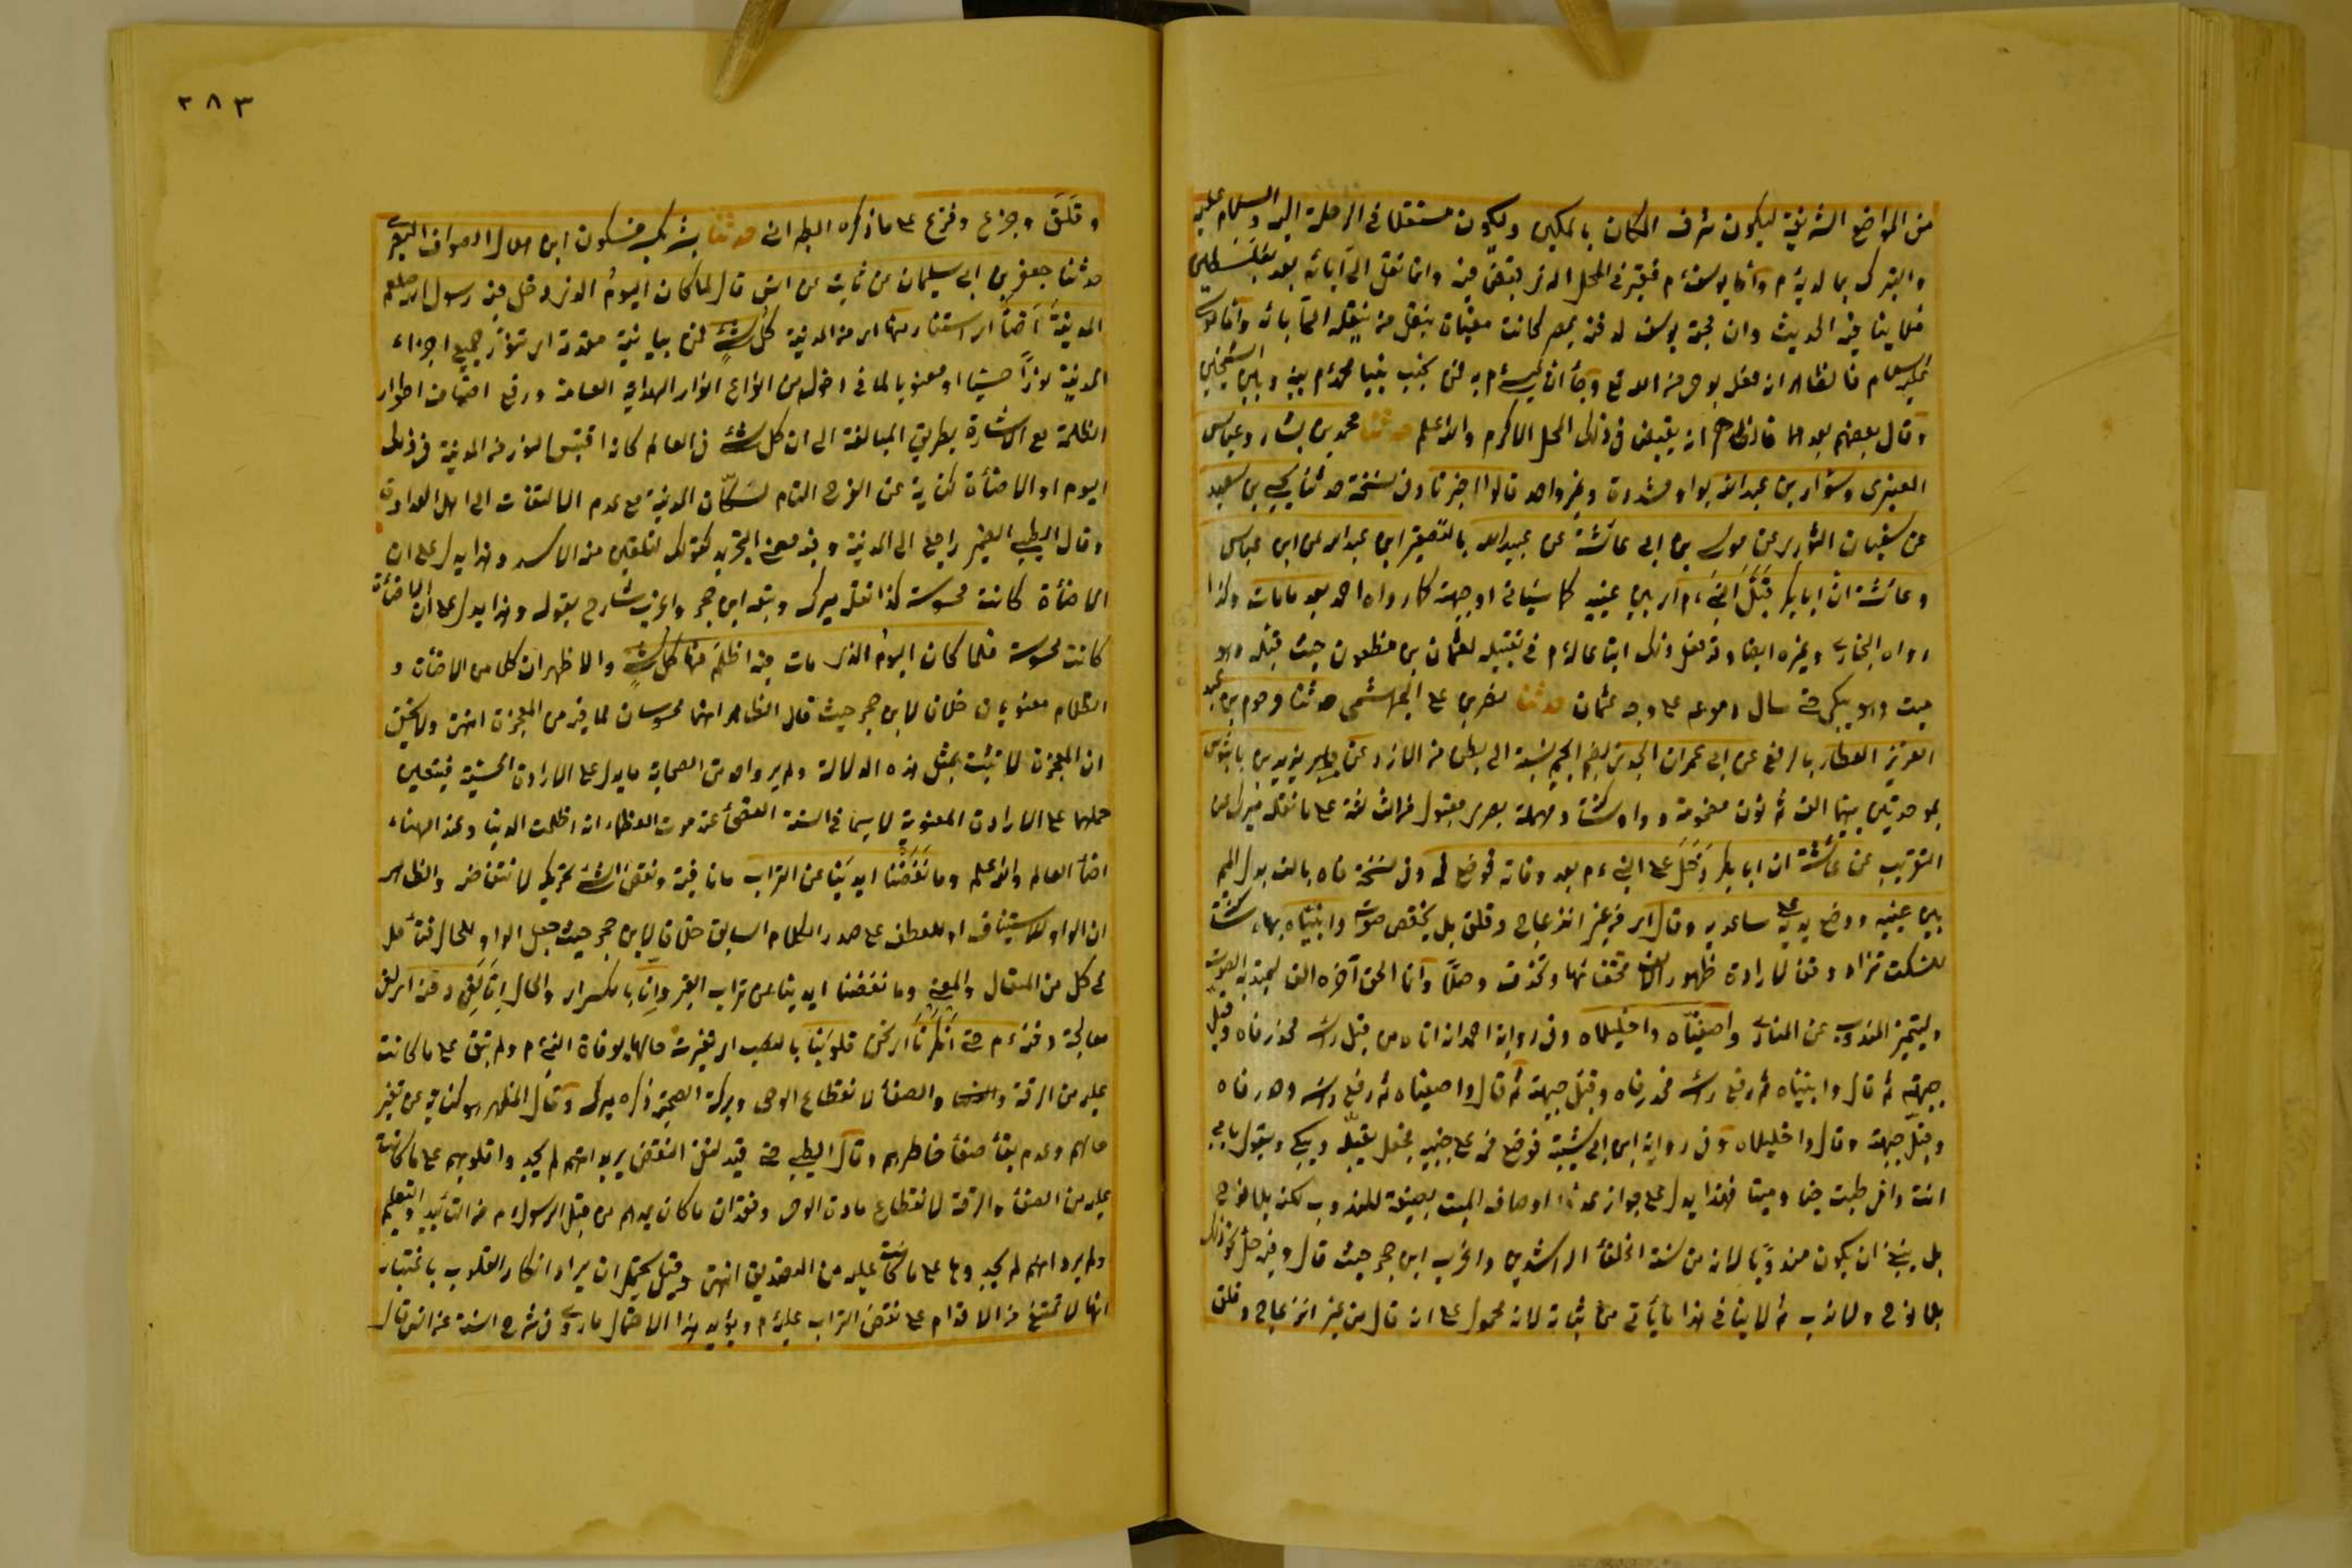 من المواضع الشريفة ليكون شرف المكان بالمكين وليكون مستقلا في الرحلة اليه والسلام عليه
والتبرك بما لديه م وأما يوسف م فقبر في المحل الذي يقبض فيه وانما نقل الى آبائه بعد بفلسطين
فلا ينافيه الحديث وان محبة يوسف لدفنه بمصر كانت مغياة بنقل من ينقله الى آبائه وأما موسى
عليه السلام فالظاهر ان فعله بوحي من الله تع وجاء ان عيسى م يدفن بجنب نبينا محمد م بينه وبين الشيخين
وقال بعضهم بعدهما فالظاهر انه يقبض في ذلك المحل الاكرم والله اعلم حدثنا محمد بن بشار وعباس
العنبرى وسوار بن عبد الله بواو مشددة وغير واحد قالوا اخبرنا وفي نسخة حدثنا يحيى بن سعيد
عن سفيان الثوري عن موسى بن ابي عائشة عن عبيد الله بالتصغير ابن عبد الله عن ابن عباس
وعائشة ان ابا بكر قبل النبي م اي بين عينيه كما سيأتي او جبهته كما رواه احمد بعد ما مات وكذا
رواه البخاري وغيره ايضا وقد فعل ذلك اتباعا له م في تقبيله لعثمان بن مظعون حيث قبله وهو
ميت وهو يبكي حتى سال دموعه على وجه عثمان حدثنا نصر بن علي الجهضمي حدثنا مرحوم بن عبد
العزيز العطار بالرفع عن ابي عمران الجوني بفتح الجيم نسبة الى بطن من الازد وعن يزيد بن بابنوس
بموحدتين بينهما الف ثم نون مضمومة وواو ساكنة ومهملة بصري مقبول من الثالثة على ما نقله ميرك عن
التقريب عن عائشة ان ابا بكر دخل على النبي م بعد وفاته فوضع فمه وفي نسخة فاه بالف بدل الميم
بين عينيه ووضع يديه على ساعديه وقال اي من غير انزعاج وقلق بل بخفض صوت وانبياه بهاء ساكنة
للسكت تزاد وقفا لارادة ظهور الالف لخفائها وتحذف وصلا وانما الحق آخره الف ليمتد به الصوت
وليتميز المندوب عن المنادى واصفياه واخليلاه وفي رواية احمد انه اتاه من قبل رأسه فحدر فاه وقبل
جبهته ثم قال وانبياه ثم رفع رأسه فحدر فاه وقبل جبهته ثم قال واصفياه ثم رفع رأسه وحدر فاه
وقبل جبهته وقال واخليلاه وفي رواية ابن ابي شيبة فوضع فمه على جبينه فجعل يقبله ويبكي ويقول بابي
انت وامي طبت حيا وميتا فهذا يدل على جواز عد اوصاف الميت بصيغة المندوب لكن بلا نوح
بل ينبغي ان يكون مندوبا لانه من سنة الخلفاء الراشدين واغرب ابن حجر حيث قال وفيه حل نحو ذلك
بلا نوح ولا ندب ثم لا ينافي هذا ما يأتي من ثباته لانه محمول على انه قال من غير انزعاج وقلق
٣٨٣
وقلق وجزع وفزع على ما ذكره الطبراني حدثنا بشر بكسر فسكون ابن هلال الصواف البصري
حدثنا جعفر بن ابي سليمان عن ثابت عن انس قال لما كان اليوم الذي دخل فيه رسول الله صلعم
المدينة اضاء اي استنار منها اي من المدينة كل شئ من بيانية مقدمة اي تنور جميع اجزاء
المدينة نورا حسيا او معنويا لما في دخوله من انواع انوار الهداية العامة ورفع اصناف اطوار
الظلمة مع الاشارة بطريق المبالغة الى ان كل شئ في العالم كانه اقتبس النور من المدينة في ذلك
اليوم او الاضاءة كناية عن الفرح التام لسكان المدينة مع عدم الالتفات الى اهل العداوة
وقال الطيبي الضمير راجع الى المدينة وفيه معنى التجريد كقولك لتلقين منه الاسد وهذا يدل على ان
الاضاءة كانت محسوسة كذا نقله ميرك وتبعه ابن حجر واغرب شارح بقوله وهذا يدل على ان الاضاءة
كانت محسوسة فلما كان اليوم الذي مات فيه اظلم منها كل شئ والاظهر ان كلا من الاضاءة و
الظلام معنويان خلافا لابن حجر حيث قال الظاهر انهما محسوسان لما فيه من المعجزة انتهى ولا يخفى
ان المعجزة لا تثبت بمثل هذه الدلالة ولم يرد احد من الصحابة ما يدل على الارادة الحسية فيتعين
حملها على الارادة المعنوية لا سيما في السنة الفصحاء عند موت العظماء انه اظلمت الدنيا وعند الهناء
اضاء العالم والله اعلم وما نفضنا ايدينا عن التراب ما نافية ونفض الشئ تحريكه لا نتفاضه والظاهر
ان الواو للاستيناف او للعطف على صدر الكلام السابق خلافا لابن حجر حيث جعل الواو للحال فتأمل
في كل من المقال والمعنى وما نفضنا ايدينا عن تراب القبر وانا بالكسر اي والحال انا لفي دفنه اي لفي
معالجة دفنه م حتى انكرنا اي نحن قلوبنا بالنصب اي تغيرت حالها بوفاة النبي م ولم تبق على ما كانت
عليه من الرقة والصفاء لانقطاع الوحي وبركة الصحبة ذكره ميرك وقال المظهر هو كناية عن تغير
حالهم وعدم بقاء صفاء خاطرهم وقال الطيبي حتى قيد لنفي النفض يريد انهم لم يجدوا قلوبهم على ما كانت
عليه من الصفاء والرقة لانقطاع مادة الوحي وفقدان ما كان يمدهم من قبل الرسول م من التأييد والتعليم
ولم يرد انهم لم يجدوها على ما كانت عليه من التصديق انتهى وقيل يحتمل ان يراد انكار القلوب باعتبار
انها لا تمتنع من الاقدام على نفض التراب عليه م ويؤيد هذا الاحتمال ما روى في شرح السنة عن انس قال